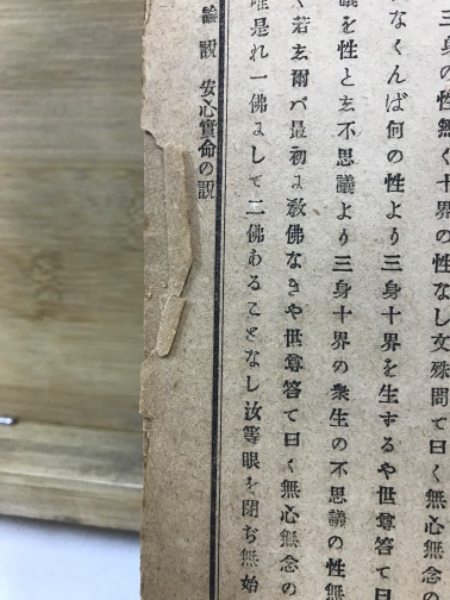 三身の性無く十界の性なし文殊問て曰く無心無念の
なくんば何の性より三身十界を生ずるや世尊答て曰
議を性と𛀁不思議より三身十界の衆生の不思議の性無
く若𛀁爾バ最初に教佛なきや世尊答て曰く無心無念の
唯是れ一佛にして二佛あることなし汝等眼を閉ぢ無始
論説 安心實命の説